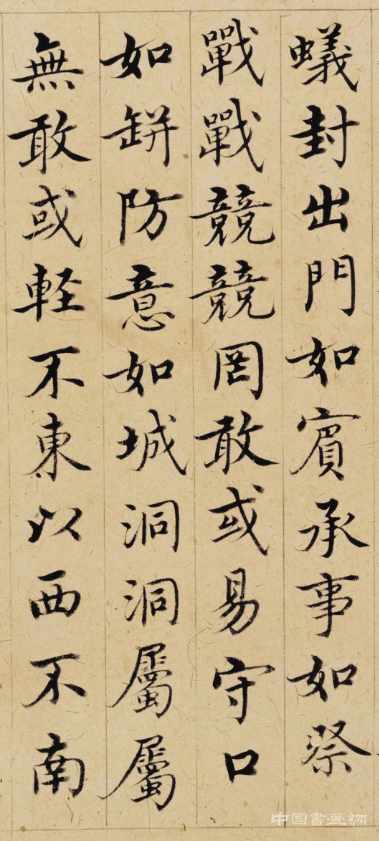 蟻封出門如賓承事如祭
戰戰競競罔敢或易守口
如缾防意如城洞洞屬屬
無敢或軽不東以西不南
中国书画网